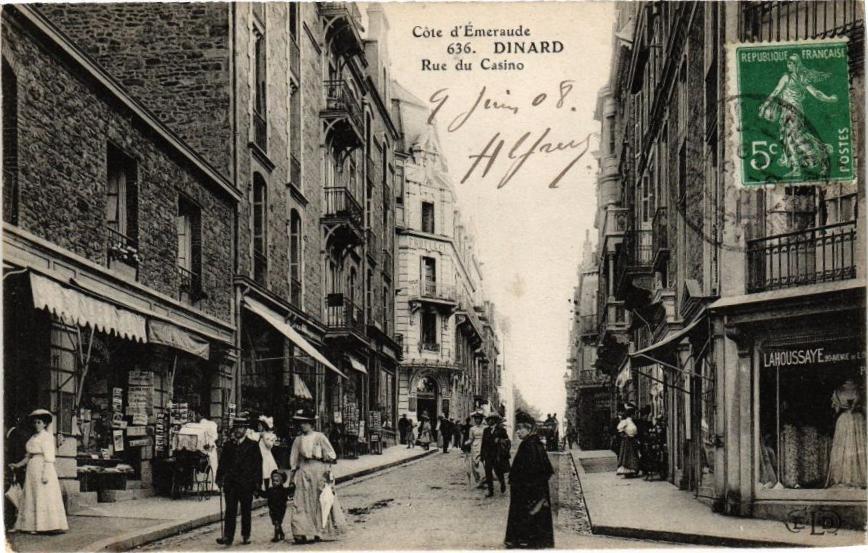 Côte d'Émeraude
636. DINARD
Rue du Casino
9 Juin 08.
REPUBLIQUE FRANÇAISE
5c
POSTES
LAHOUSSAYE
ELD